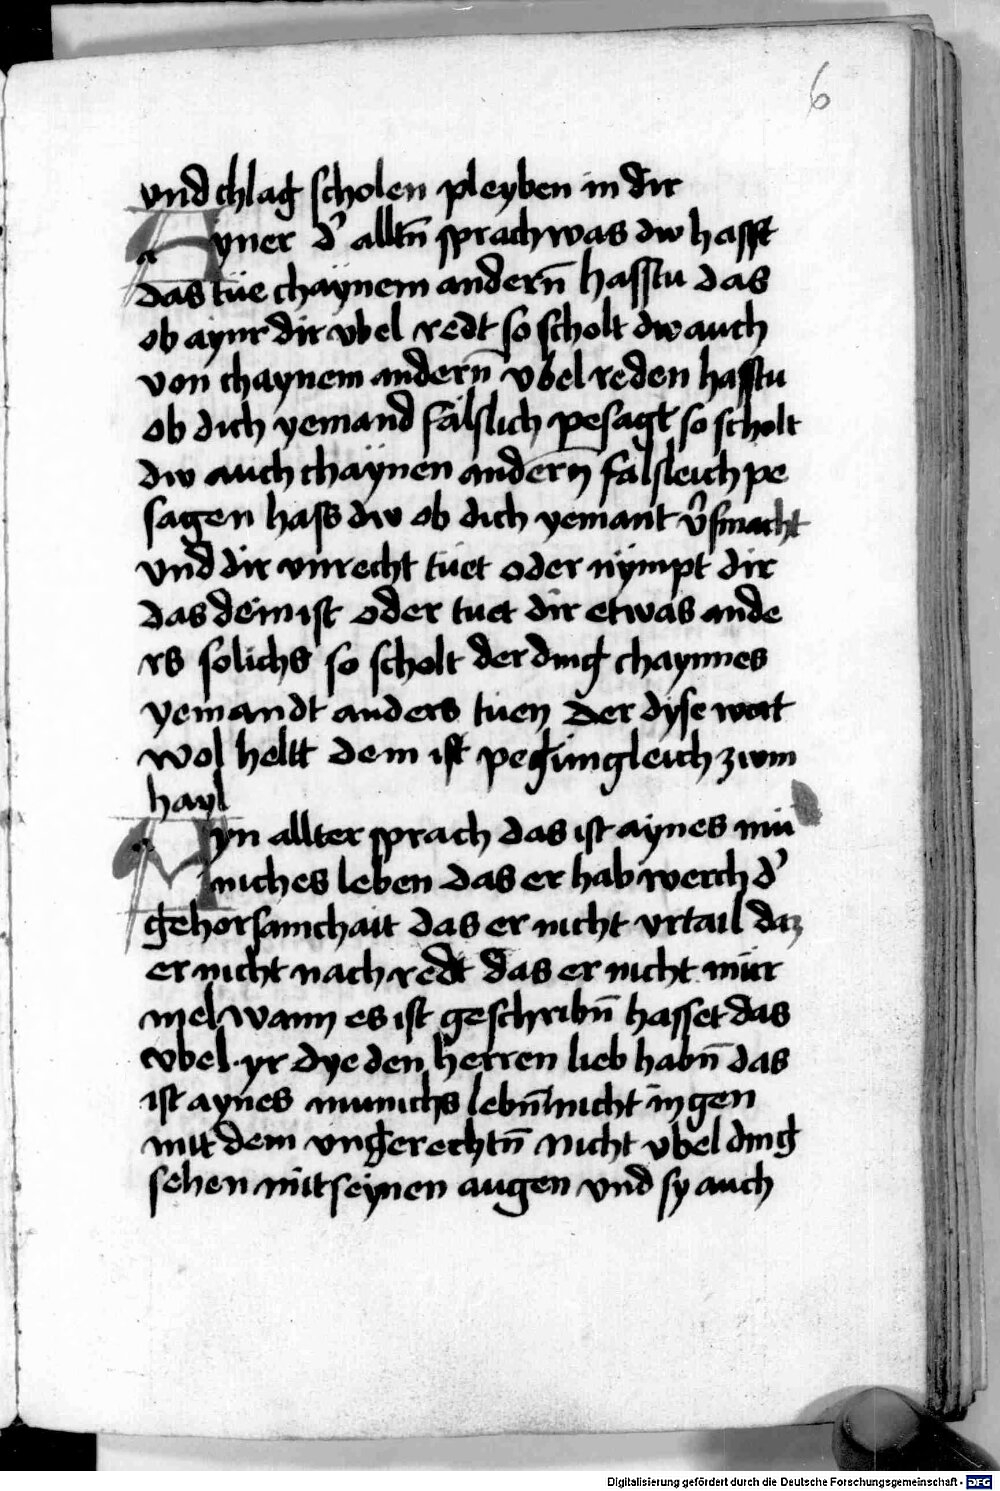 6
vnd chlag scholen pleyben in dir
Ayner d' alltn̄ sprach was dw hasst
das tüe chaynem andern̄ hasstu das
ob aynr dir vbel redt so scholt dw auch
von chaynem andern̄ vbel reden hasstu
ob dich yemand fälslich pesagt so scholt
dw auch chaynen andern̄ falsleich pe
sagen hass dw ob dich yemant v̄smacht
vnd dir vnrecht tüet oder nympt dir
das dein ist oder tuet dir etwas ande
rs solichs so scholt der ding chaynnes
yemandt anders tuen Der dyse wort
wol heltt dem ist pegüngleich zwm
hayl
Ayn allter sprach das ist aynes mü
niches leben das er hab werch d'
gehorsamchait das er nicht vrtail daz
er nicht nach redt das er nicht mür
mel wann es ist geschribn̄ hasset das
vbel yr dye den herren lieb habn̄ das
ist aynes munichs lebn̄ nicht in gen
mit dem vngerechtn̄ nicht vbel ding
sehen mit seynen augen vnd sy auch
Digitalisierung gefördert durch die Deutsche Forschungsgemeinschaft - DFG